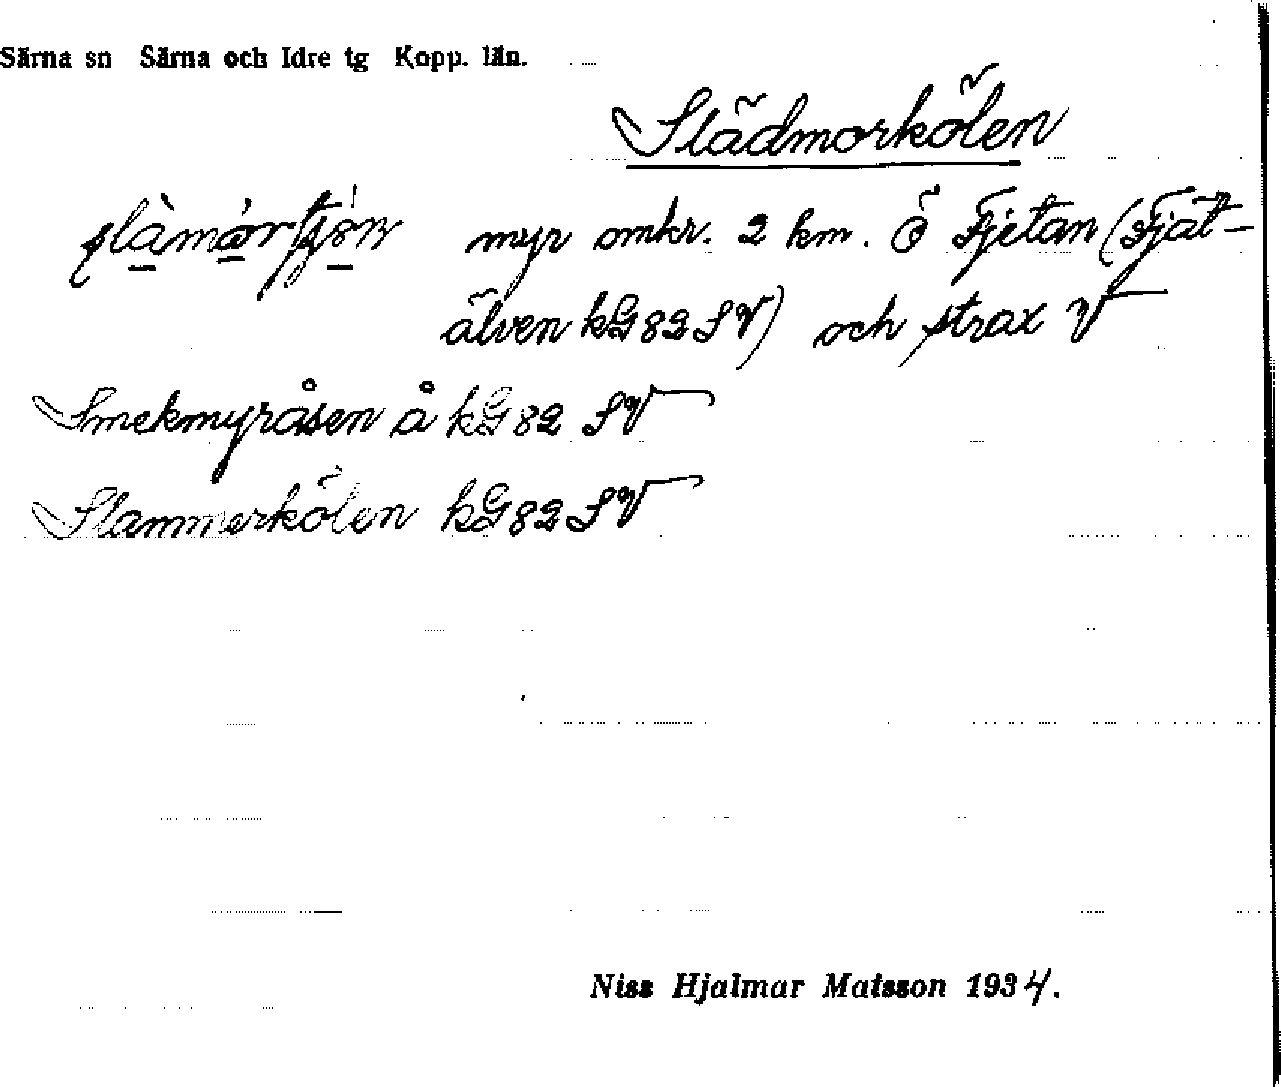 Särna sn Särna och Idre tg Kopp. län.
Slädmorkölen
myr omkr. 2 km. Ö Fjetan (Fjät-
älven kG 82 SV) och strax V
Smekmyråsen å kG 82 SV
Slammerkölen kG 82 SV
Niss Hjalmar Matsson 1934.